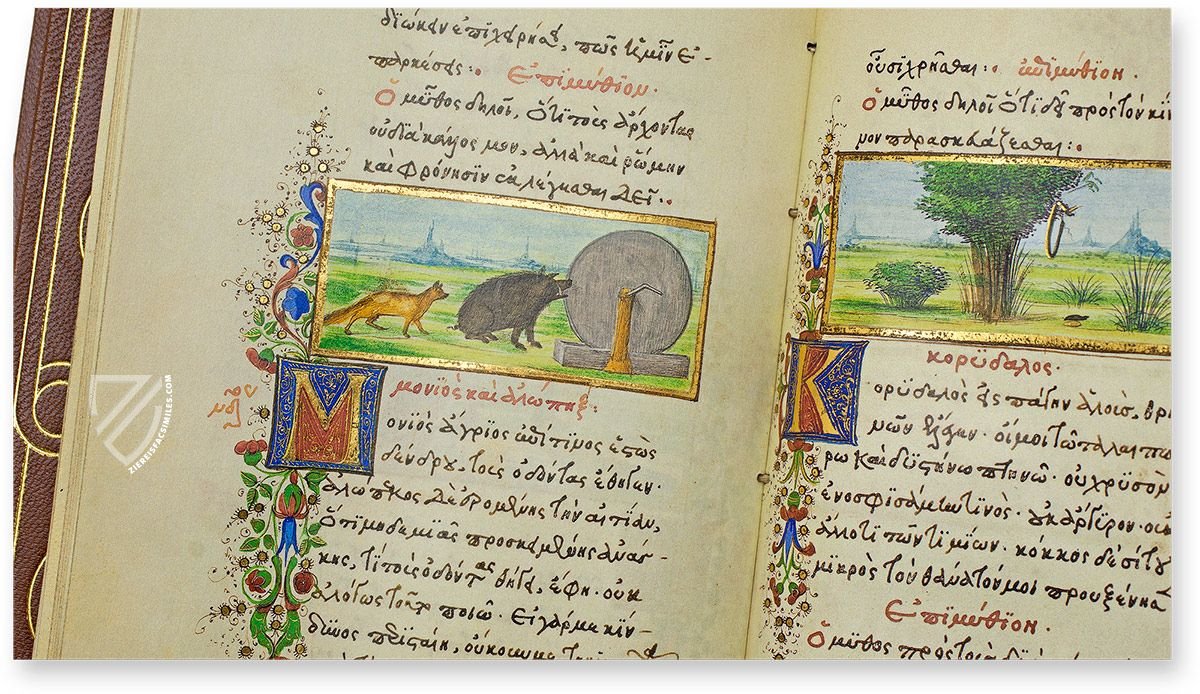 Ἐπιμύθιον.
Ὁ μῦθος δηλοῖ, ὅτι τοὺς ἄρχοντας
οὐ διὰ κάλλος μόνον, ἀλλὰ καὶ ῥώμην
καὶ φρόνησιν ἐκλέγεσθαι δεῖ.
μονιὸς καὶ ἀλώπηξ:
Μονιὸς ἄγριος ἐπί τινος ἑστὼς
δένδρου τοὺς ὀδόντας ἔθηγεν.
ἀλώπεκος δὲ ἐρομένης τὴν αἰτίαν,
ὅτι μηδεμιᾶς προσκειμένης ἀνάγ-
κης, τοὺς ὀδόντας θήγει, ἔφη. οὐκ
ἀλόγως τοῦτο ποιῶ. εἰ γάρ με κίν-
δυνος
ZIEREISFACSIMILES.COM
ἐπιμύθιον.
Ὁ μῦθος δηλοῖ ὅτι δεῖ πρὸς τὸν κίν
παρασκευάζεσθαι:
κορύδαλος.
Κορύδαλος εἰς πάγην ἁλοὺς, θρη
ἔλεγεν. οἴμοι τῷ ταλαιπώ
ρῳ καὶ δυστήνῳ πτηνῷ. οὐ χρυσὸν
ἐνοσφισάμην τινός. οὐκ ἄργυρον. οὐκ
ἄλλο τι τῶν τιμίων. κόκκος δὲ σίτου
μικρὸς τὸν θάνατόν μοι προυξένησε
Ἐπιμύθιον.
Ὁ μῦθος πρὸς τοὺς